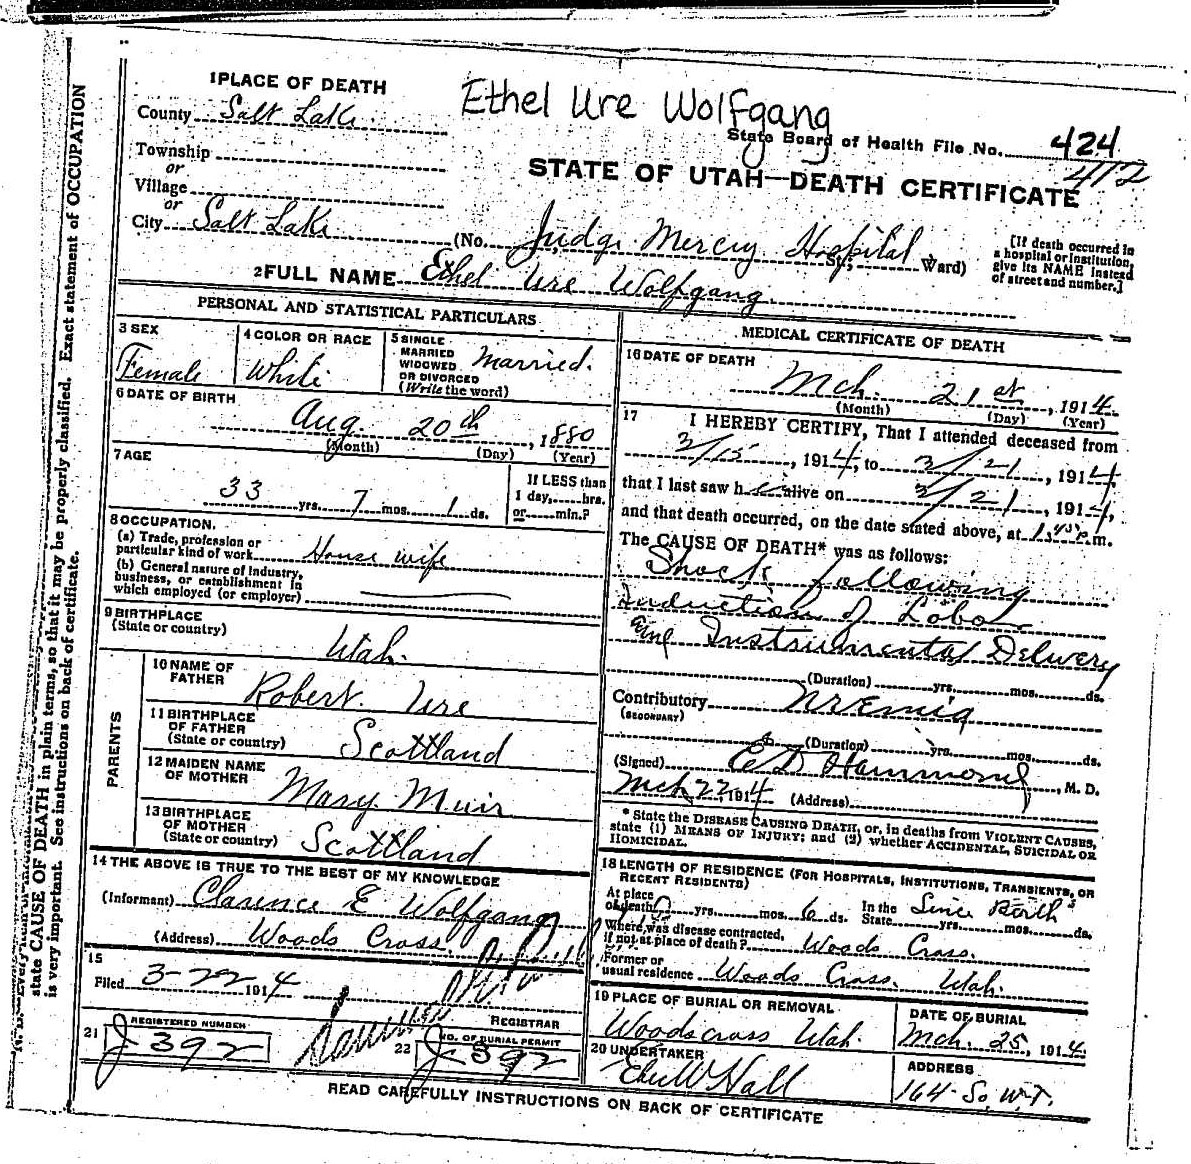 1 PLACE OF DEATH
Ethel Ure Wolfgang
County Salt Lake
State Board of Health File No. 424
412
Township
or
Village
or
STATE OF UTAH—DEATH CERTIFICATE
City Salt Lake (No. Judge Mercy Hospital St., Ward)
[If death occurred in a hospital or institution, give its NAME instead of street and number.]
2 FULL NAME Ethel Ure Wolfgang
PERSONAL AND STATISTICAL PARTICULARS
3 SEX
Female
4 COLOR OR RACE
White
5 SINGLE
MARRIED
WIDOWED
OR DIVORCED
(Write the word)
Married.
6 DATE OF BIRTH
Aug. 20th, 1880
(Month) (Day) (Year)
7 AGE
33 yrs. 7 mos. 1 ds.
If LESS than
1 day,......hrs.
or......min.?
8 OCCUPATION.
(a) Trade, profession or
particular kind of work House wife
(b) General nature of industry,
business, or establishment in
which employed (or employer)
9 BIRTHPLACE
(State or country)
Utah.
PARENTS
10 NAME OF
FATHER
Robert Ure
11 BIRTHPLACE
OF FATHER
(State or country)
Scottland
12 MAIDEN NAME
OF MOTHER
Mary Muir
13 BIRTHPLACE
OF MOTHER
(State or country)
Scottland
14 THE ABOVE IS TRUE TO THE BEST OF MY KNOWLEDGE
(Informant) Clarence E Wolfgang
(Address) Woods Cross,
15
Filed 3-22 1914
REGISTRAR
21 REGISTERED NUMBER
J 392
22 NO. OF BURIAL PERMIT
J 392
MEDICAL CERTIFICATE OF DEATH
16 DATE OF DEATH
Mch. 21st, 1914.
(Month) (Day) (Year)
17 I HEREBY CERTIFY, That I attended deceased from
3/15, 1914, to 3/21, 1914,
that I last saw h alive on 3/21, 1914,
and that death occurred, on the date stated above, at 1.45 P.m.
The CAUSE OF DEATH* was as follows:
Shock following
Induction of Labor
and Instrumental Delivery
(Duration) yrs. mos. ds.
Contributory Uremia
(SECONDARY)
(Duration) yrs. mos. ds.
(Signed) E D Hammond, M. D.
Mch 22, 1914 (Address)
* State the DISEASE CAUSING DEATH, or, in deaths from VIOLENT CAUSES,
state (1) MEANS OF INJURY; and (2) whether ACCIDENTAL, SUICIDAL OR
HOMICIDAL.
18 LENGTH OF RESIDENCE (FOR HOSPITALS, INSTITUTIONS, TRANSIENTS, OR
RECENT RESIDENTS)
At place
of death yrs. mos. 6 ds. In the State Since Birth yrs. mos. ds.
Where was disease contracted,
if not at place of death? Woods Cross.
Former or
usual residence Woods Cross. Utah.
19 PLACE OF BURIAL OR REMOVAL
Woodscross Utah.
DATE OF BURIAL
Mch. 25, 1914.
20 UNDERTAKER
Eber W Hall
ADDRESS
164- So. W.T.
READ CAREFULLY INSTRUCTIONS ON BACK OF CERTIFICATE
state CAUSE OF DEATH in plain terms, so that it may be properly classified. Exact statement of OCCUPATION
is very important. See instructions on back of certificate.